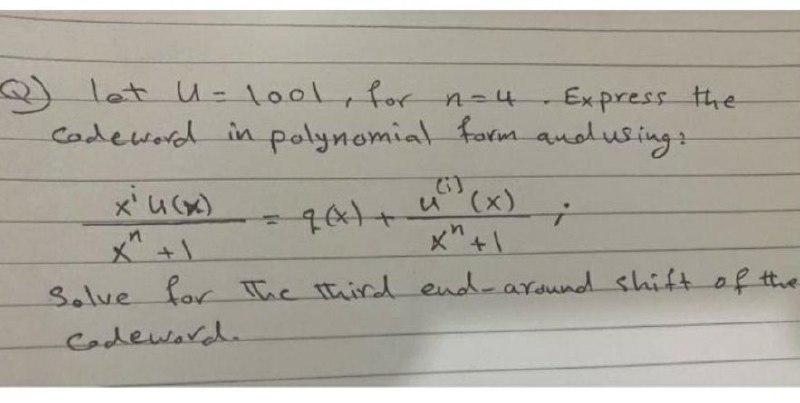 Q) let U = 1001, for n=4. Express the
codeword in polynomial form and using:
x^i u(x) / (x^n + 1) = q(x) + u^(i)(x) / (x^n + 1) ;
Solve for The third end-around shift of the
codeword.